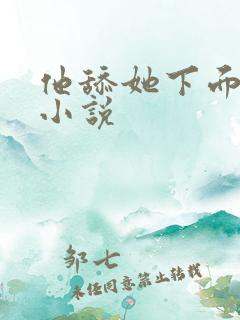 他舔她下面
小说
邹七
未经同意禁止转载